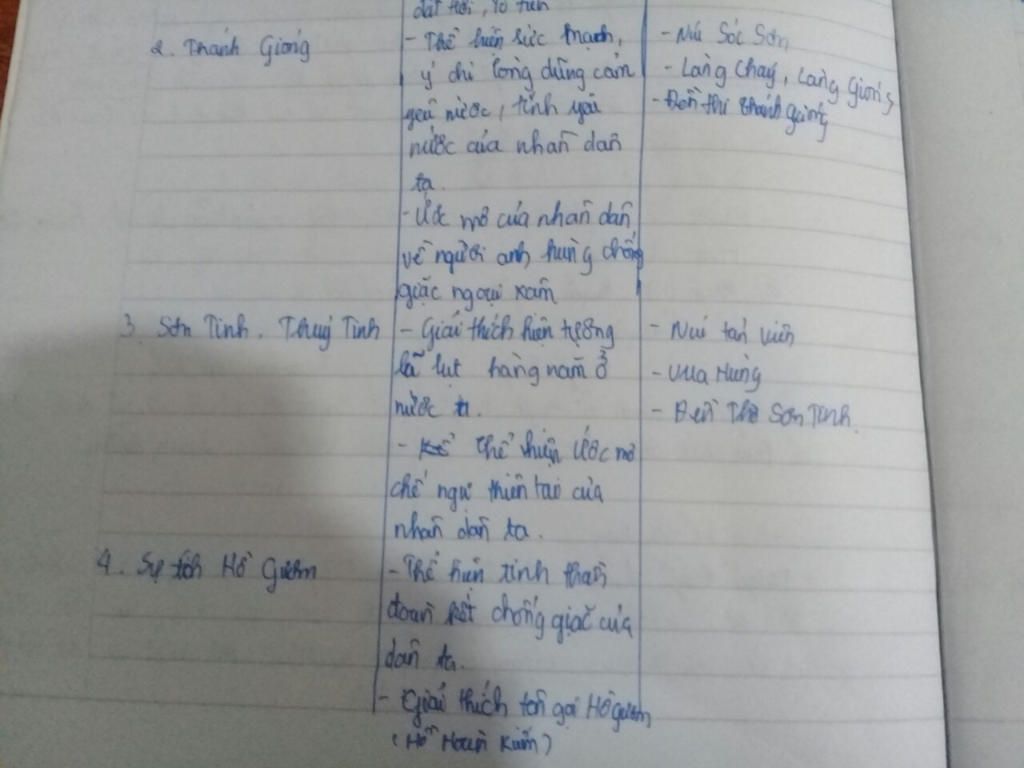 đất trời, tổ tiên
2. Thánh Gióng
- Thể hiện sức mạnh,
ý chí lòng dũng cảm
yêu nước, tinh yêu
nước của nhân dân
ta.
- Ước mơ của nhân dân
về người anh hùng chống
giặc ngoại xâm
- Núi Sóc Sơn
- Làng Cháy, Làng Gióng
- Đền thờ thánh gióng
3. Sơn Tinh, Thuỷ Tinh
- Giải thích hiện tượng
lũ lụt hàng năm ở
nước ta.
- Thể hiện Ước mơ
chế ngự thiên tai của
nhân dân ta.
- Núi tản viên
- Vua Hùng
- Đền Thờ Sơn Tinh.
4. Sự tích Hồ Gươm
- Thể hiện tinh thần
đoàn kết chống giặc của
dân ta.
- Giải thích tên gọi Hồ gươm
(Hồ Hoàn Kiếm)